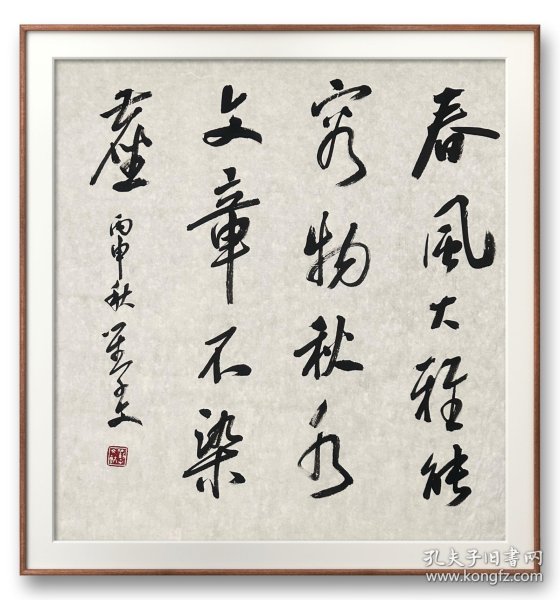 春風大雅能
容物秋水
文章不染
塵 丙申秋
孔夫子旧书网
www.kongfz.com